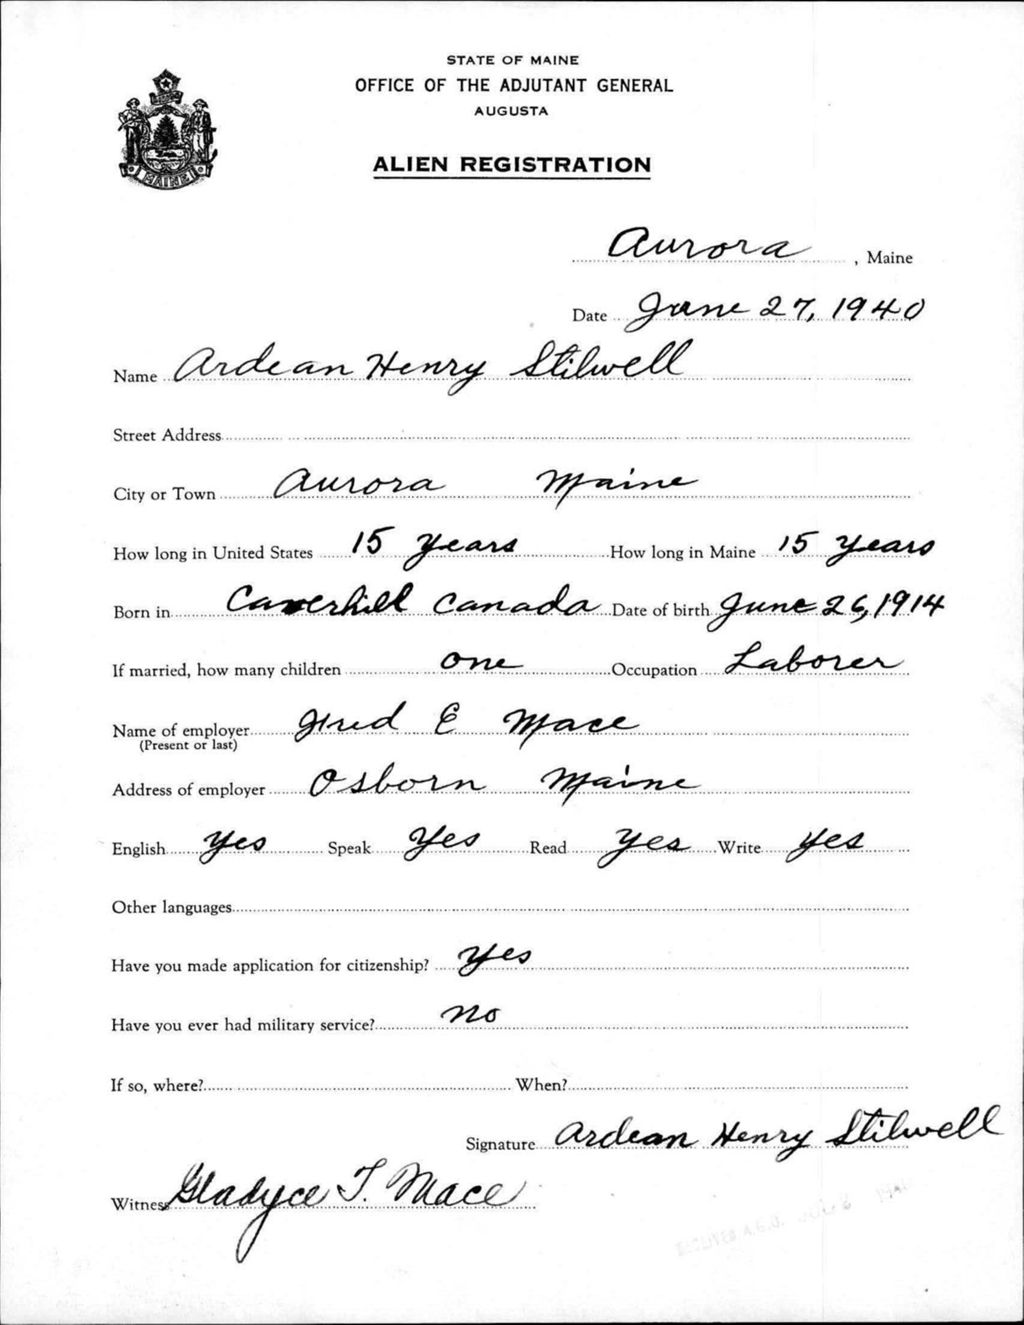 STATE OF MAINE
OFFICE OF THE ADJUTANT GENERAL
AUGUSTA
ALIEN REGISTRATION
MAINE
Aurora, Maine
Date June 27, 1940
Name Ardean Henry Stilwell
Street Address
City or Town Aurora Maine
How long in United States 15 years How long in Maine 15 years
Born in Caverhill Canada Date of birth June 26, 1914
If married, how many children one Occupation Laborer
Name of employer Fred E Mace
(Present or last)
Address of employer Osborn Maine
English Yes Speak Yes Read Yes Write Yes
Other languages
Have you made application for citizenship? Yes
Have you ever had military service? no
If so, where? When?
Signature Ardean Henry Stilwell
Witness Gladyce T. Mace
RECEIVED A.G.O. JUL 2 1940